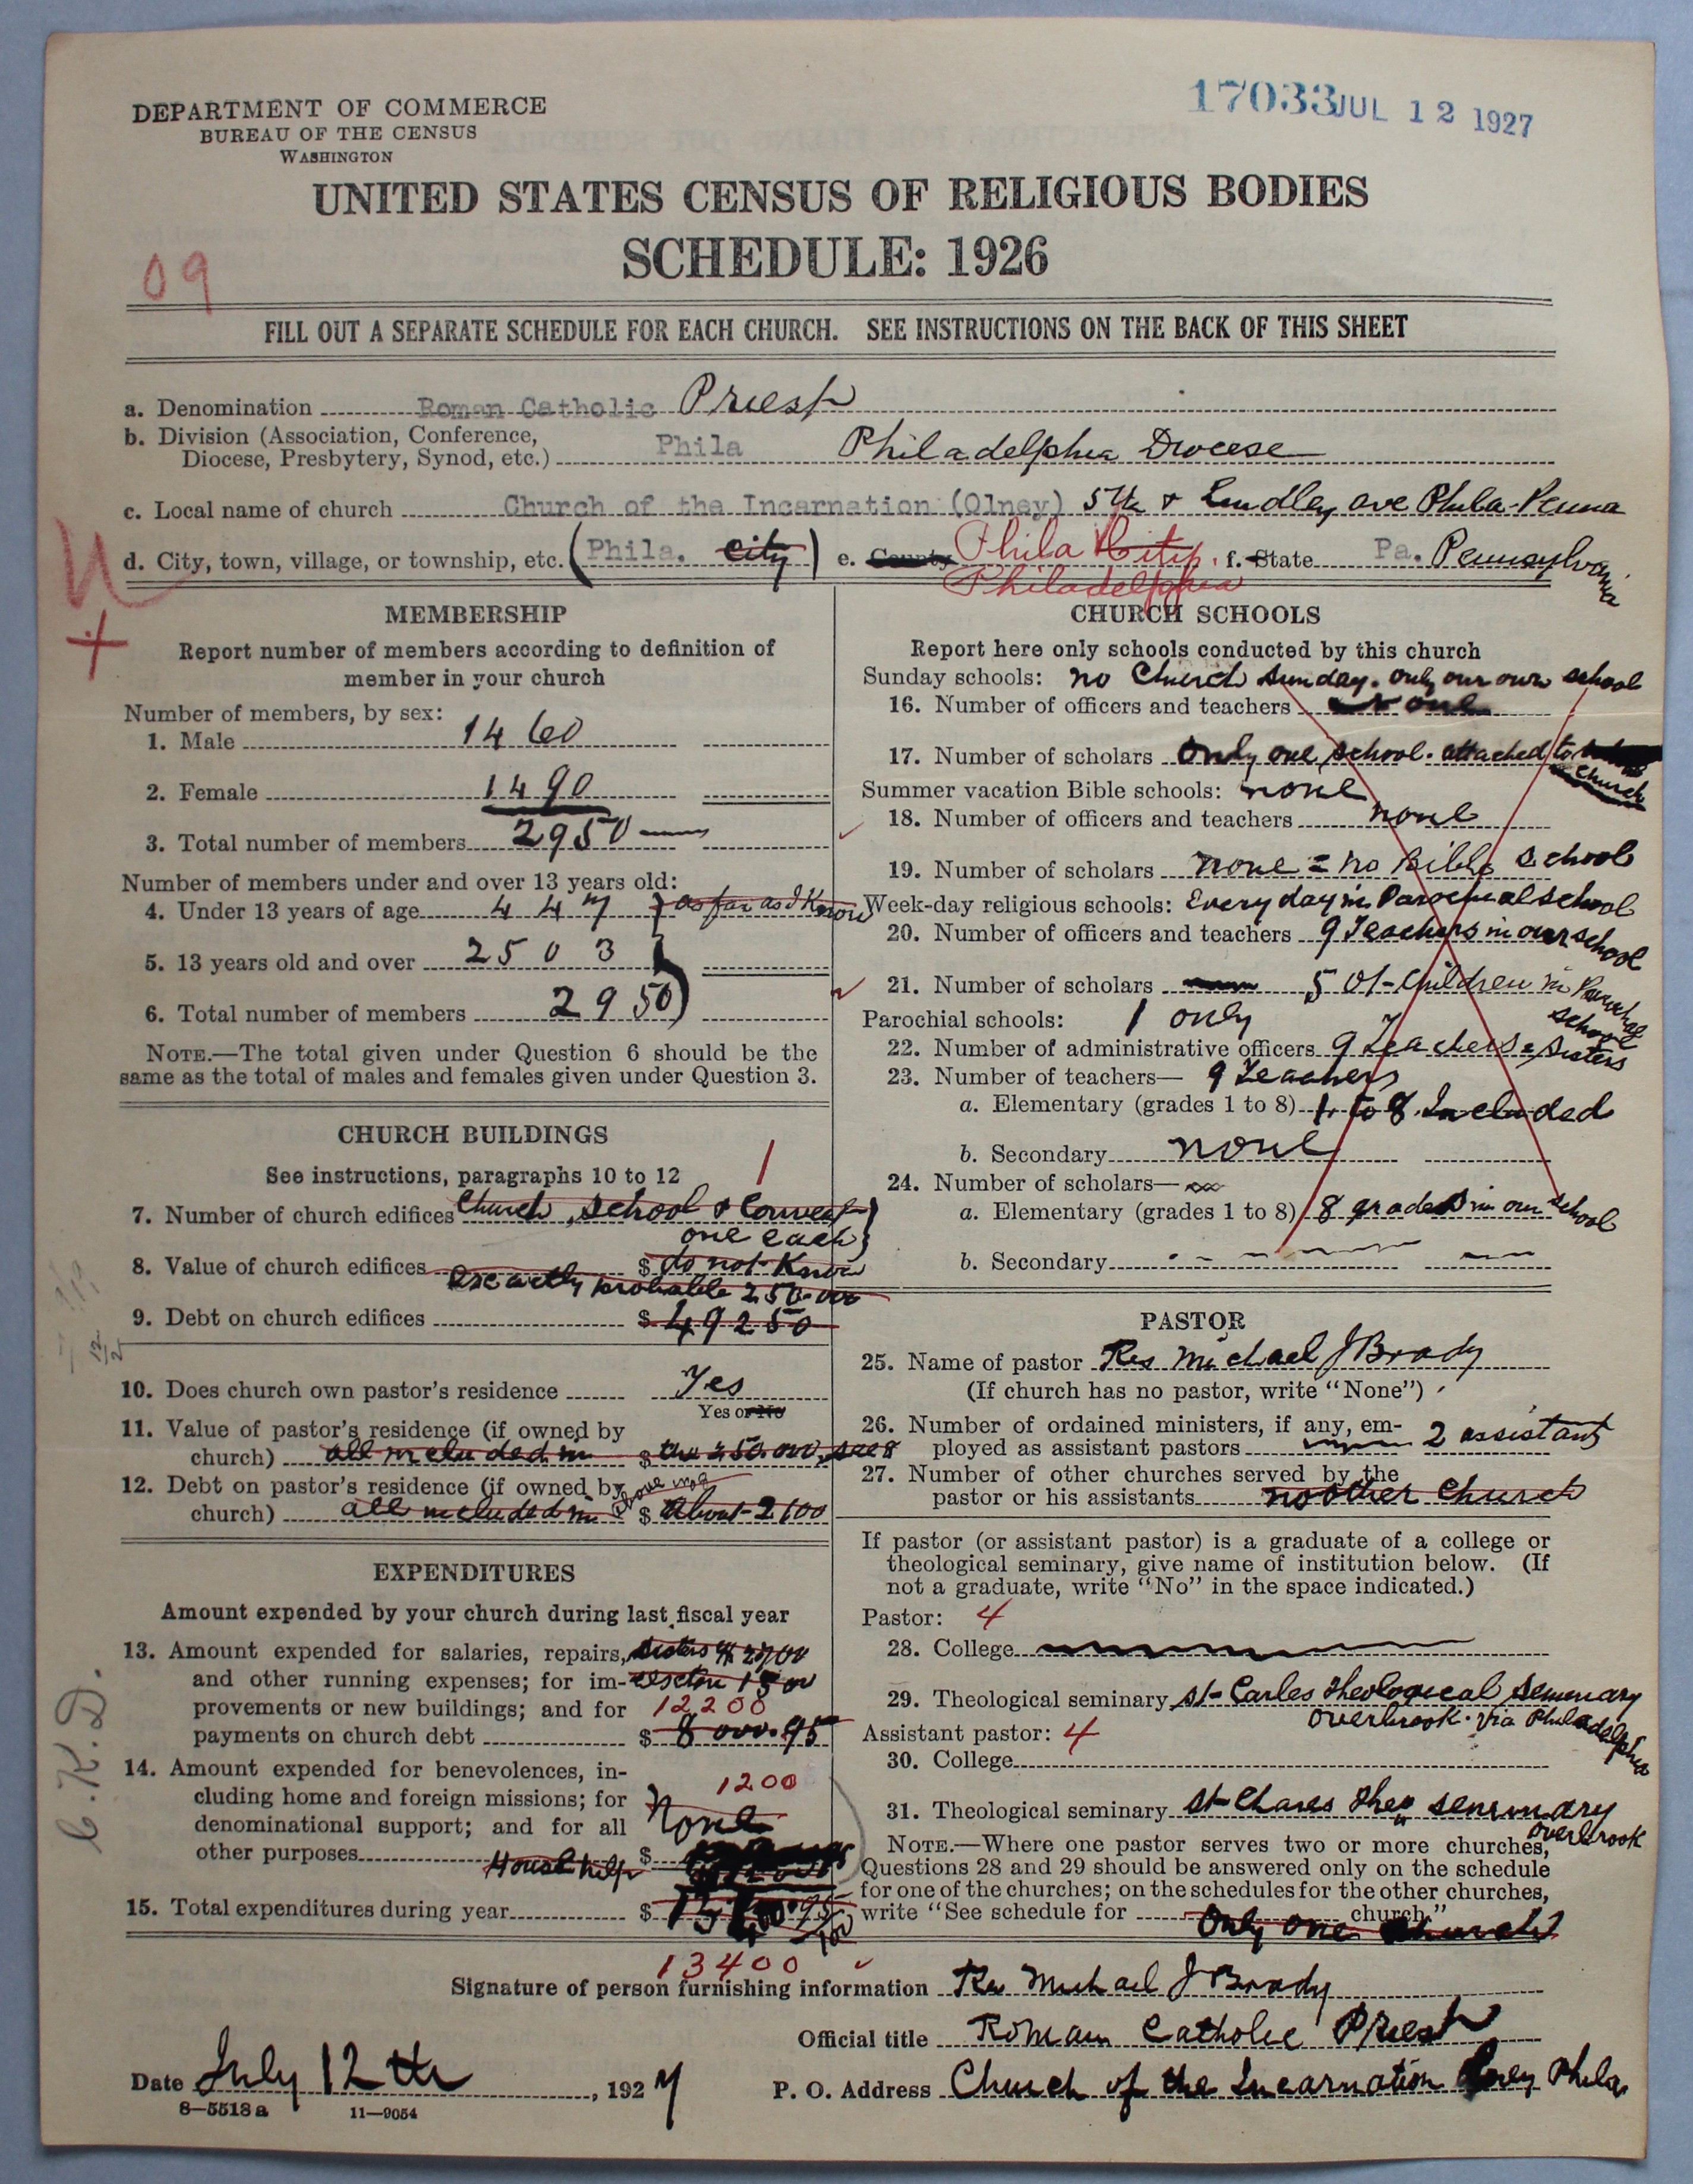 17033 JUL 12 1927
DEPARTMENT OF COMMERCE
BUREAU OF THE CENSUS
WASHINGTON
UNITED STATES CENSUS OF RELIGIOUS BODIES
SCHEDULE: 1926
09
FILL OUT A SEPARATE SCHEDULE FOR EACH CHURCH. SEE INSTRUCTIONS ON THE BACK OF THIS SHEET
a. Denomination Roman Catholic Priest
b. Division (Association, Conference,
Diocese, Presbytery, Synod, etc.) Phila Philadelphia Diocese
c. Local name of church Church of the Incarnation (Olney) 5th & Lindley ave Phila-Penna
d. City, town, village, or township, etc. (Phila. city) e. County Phila City. f. State Pa. Pennsylvania
Philadelphia
MEMBERSHIP
Report number of members according to definition of
member in your church
Number of members, by sex:
1. Male 1460
2. Female 1490
3. Total number of members 2950
Number of members under and over 13 years old:
4. Under 13 years of age 447 } as far as I Know
5. 13 years old and over 2503
6. Total number of members 2950
NOTE.—The total given under Question 6 should be the
same as the total of males and females given under Question 3.
CHURCH BUILDINGS
See instructions, paragraphs 10 to 12
1
7. Number of church edifices Church, school & Convent
one each
8. Value of church edifices $ do not Know
exactly probable 250.000
9. Debt on church edifices $ 49250
12/2
10. Does church own pastor's residence Yes
Yes or No
11. Value of pastor's residence (if owned by
church) all included in $ the 250.000, see 8
12. Debt on pastor's residence (if owned by
church) all included in above $ about-2100
EXPENDITURES
Amount expended by your church during last fiscal year
13. Amount expended for salaries, repairs, sisters $2700
and other running expenses; for im- 1500
provements or new buildings; and for 12,200
payments on church debt $ 8000.95
14. Amount expended for benevolences, in-
cluding home and foreign missions; for 1200
denominational support; and for all None
other purposes House help $
15. Total expenditures during year $
13400
C.K.D.
CHURCH SCHOOLS
Report here only schools conducted by this church
Sunday schools: no Church Sunday. only our own school
16. Number of officers and teachers none
17. Number of scholars Only one school. attached to
church
Summer vacation Bible schools: none
18. Number of officers and teachers none
19. Number of scholars none = no Bible School
Week-day religious schools: Every day in Parochial school
20. Number of officers and teachers 9 Teachers in our school
21. Number of scholars 501-Children in Parochial
school
Parochial schools: 1 only
22. Number of administrative officers 9 Teachers = Sisters
23. Number of teachers— 9 Teachers
a. Elementary (grades 1 to 8) 1 to 8 Included
b. Secondary none
24. Number of scholars—
a. Elementary (grades 1 to 8) 8 grades in our school
b. Secondary
PASTOR
25. Name of pastor Rev Michael J Brady
(If church has no pastor, write "None")
26. Number of ordained ministers, if any, em-
ployed as assistant pastors 2 assistants
27. Number of other churches served by the
pastor or his assistants no other Church
If pastor (or assistant pastor) is a graduate of a college or
theological seminary, give name of institution below. (If
not a graduate, write "No" in the space indicated.)
Pastor: 4
28. College
29. Theological seminary St-Carles Theological Seminary
Overbrook. Via Philadelphia
Assistant pastor: 4
30. College
31. Theological seminary St-Chares Theo seminary
overbrook
NOTE.—Where one pastor serves two or more churches,
Questions 28 and 29 should be answered only on the schedule
for one of the churches; on the schedules for the other churches,
write "See schedule for church."
Only one church
Signature of person furnishing information Rev Michael J Brady
Official title Roman Catholic Priest
Date July 12th, 1927 P. O. Address Church of the Incarnation Olney Phila
8—5518a 11—9054